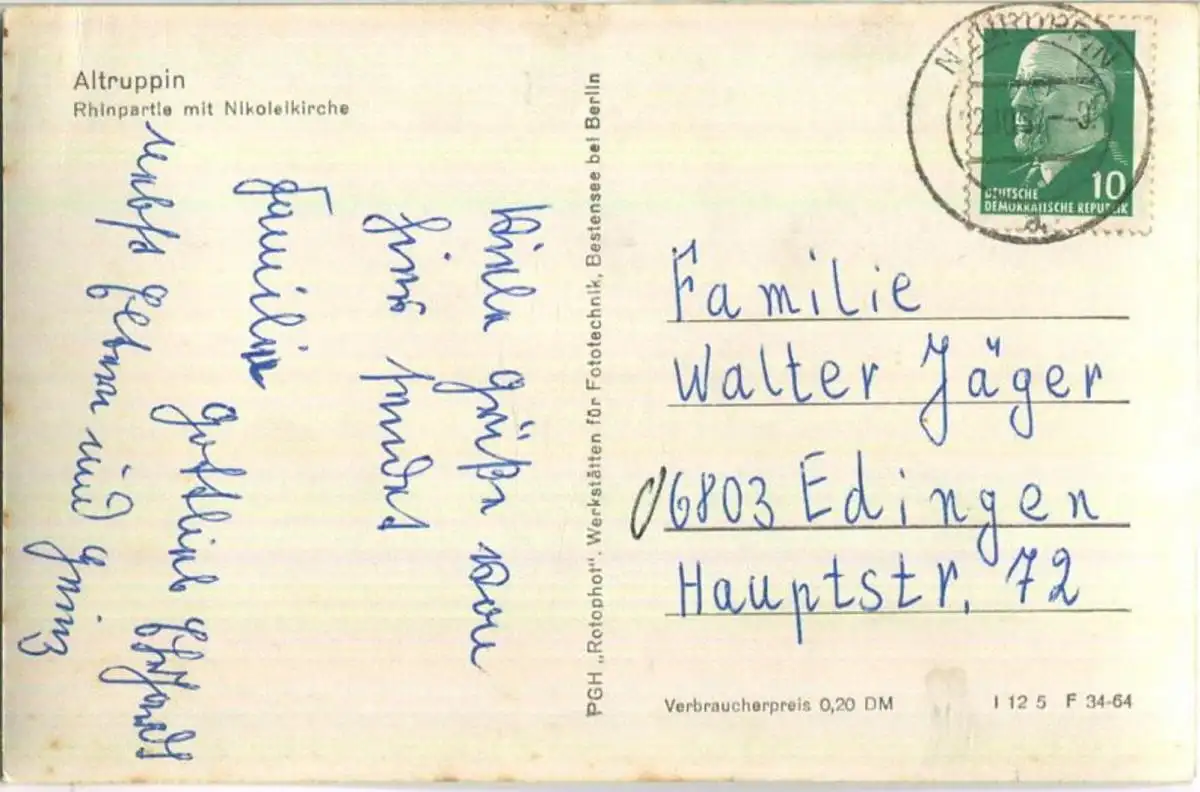 Altruppin
Rhinpartie mit Nikoleikirche
Viele Grüße von
Familie
Gottlieb
nebst
und Heinz
PGH „Rotophot", Werkstätten für Fototechnik, Bestensee bei Berlin
NEURUPPIN
a
10
DEUTSCHE
DEMOKRATISCHE REPUBLIK
Familie
Walter Jäger
06803 Edingen
Hauptstr. 72
Verbraucherpreis 0,20 DM
I 12 5 F 34-64